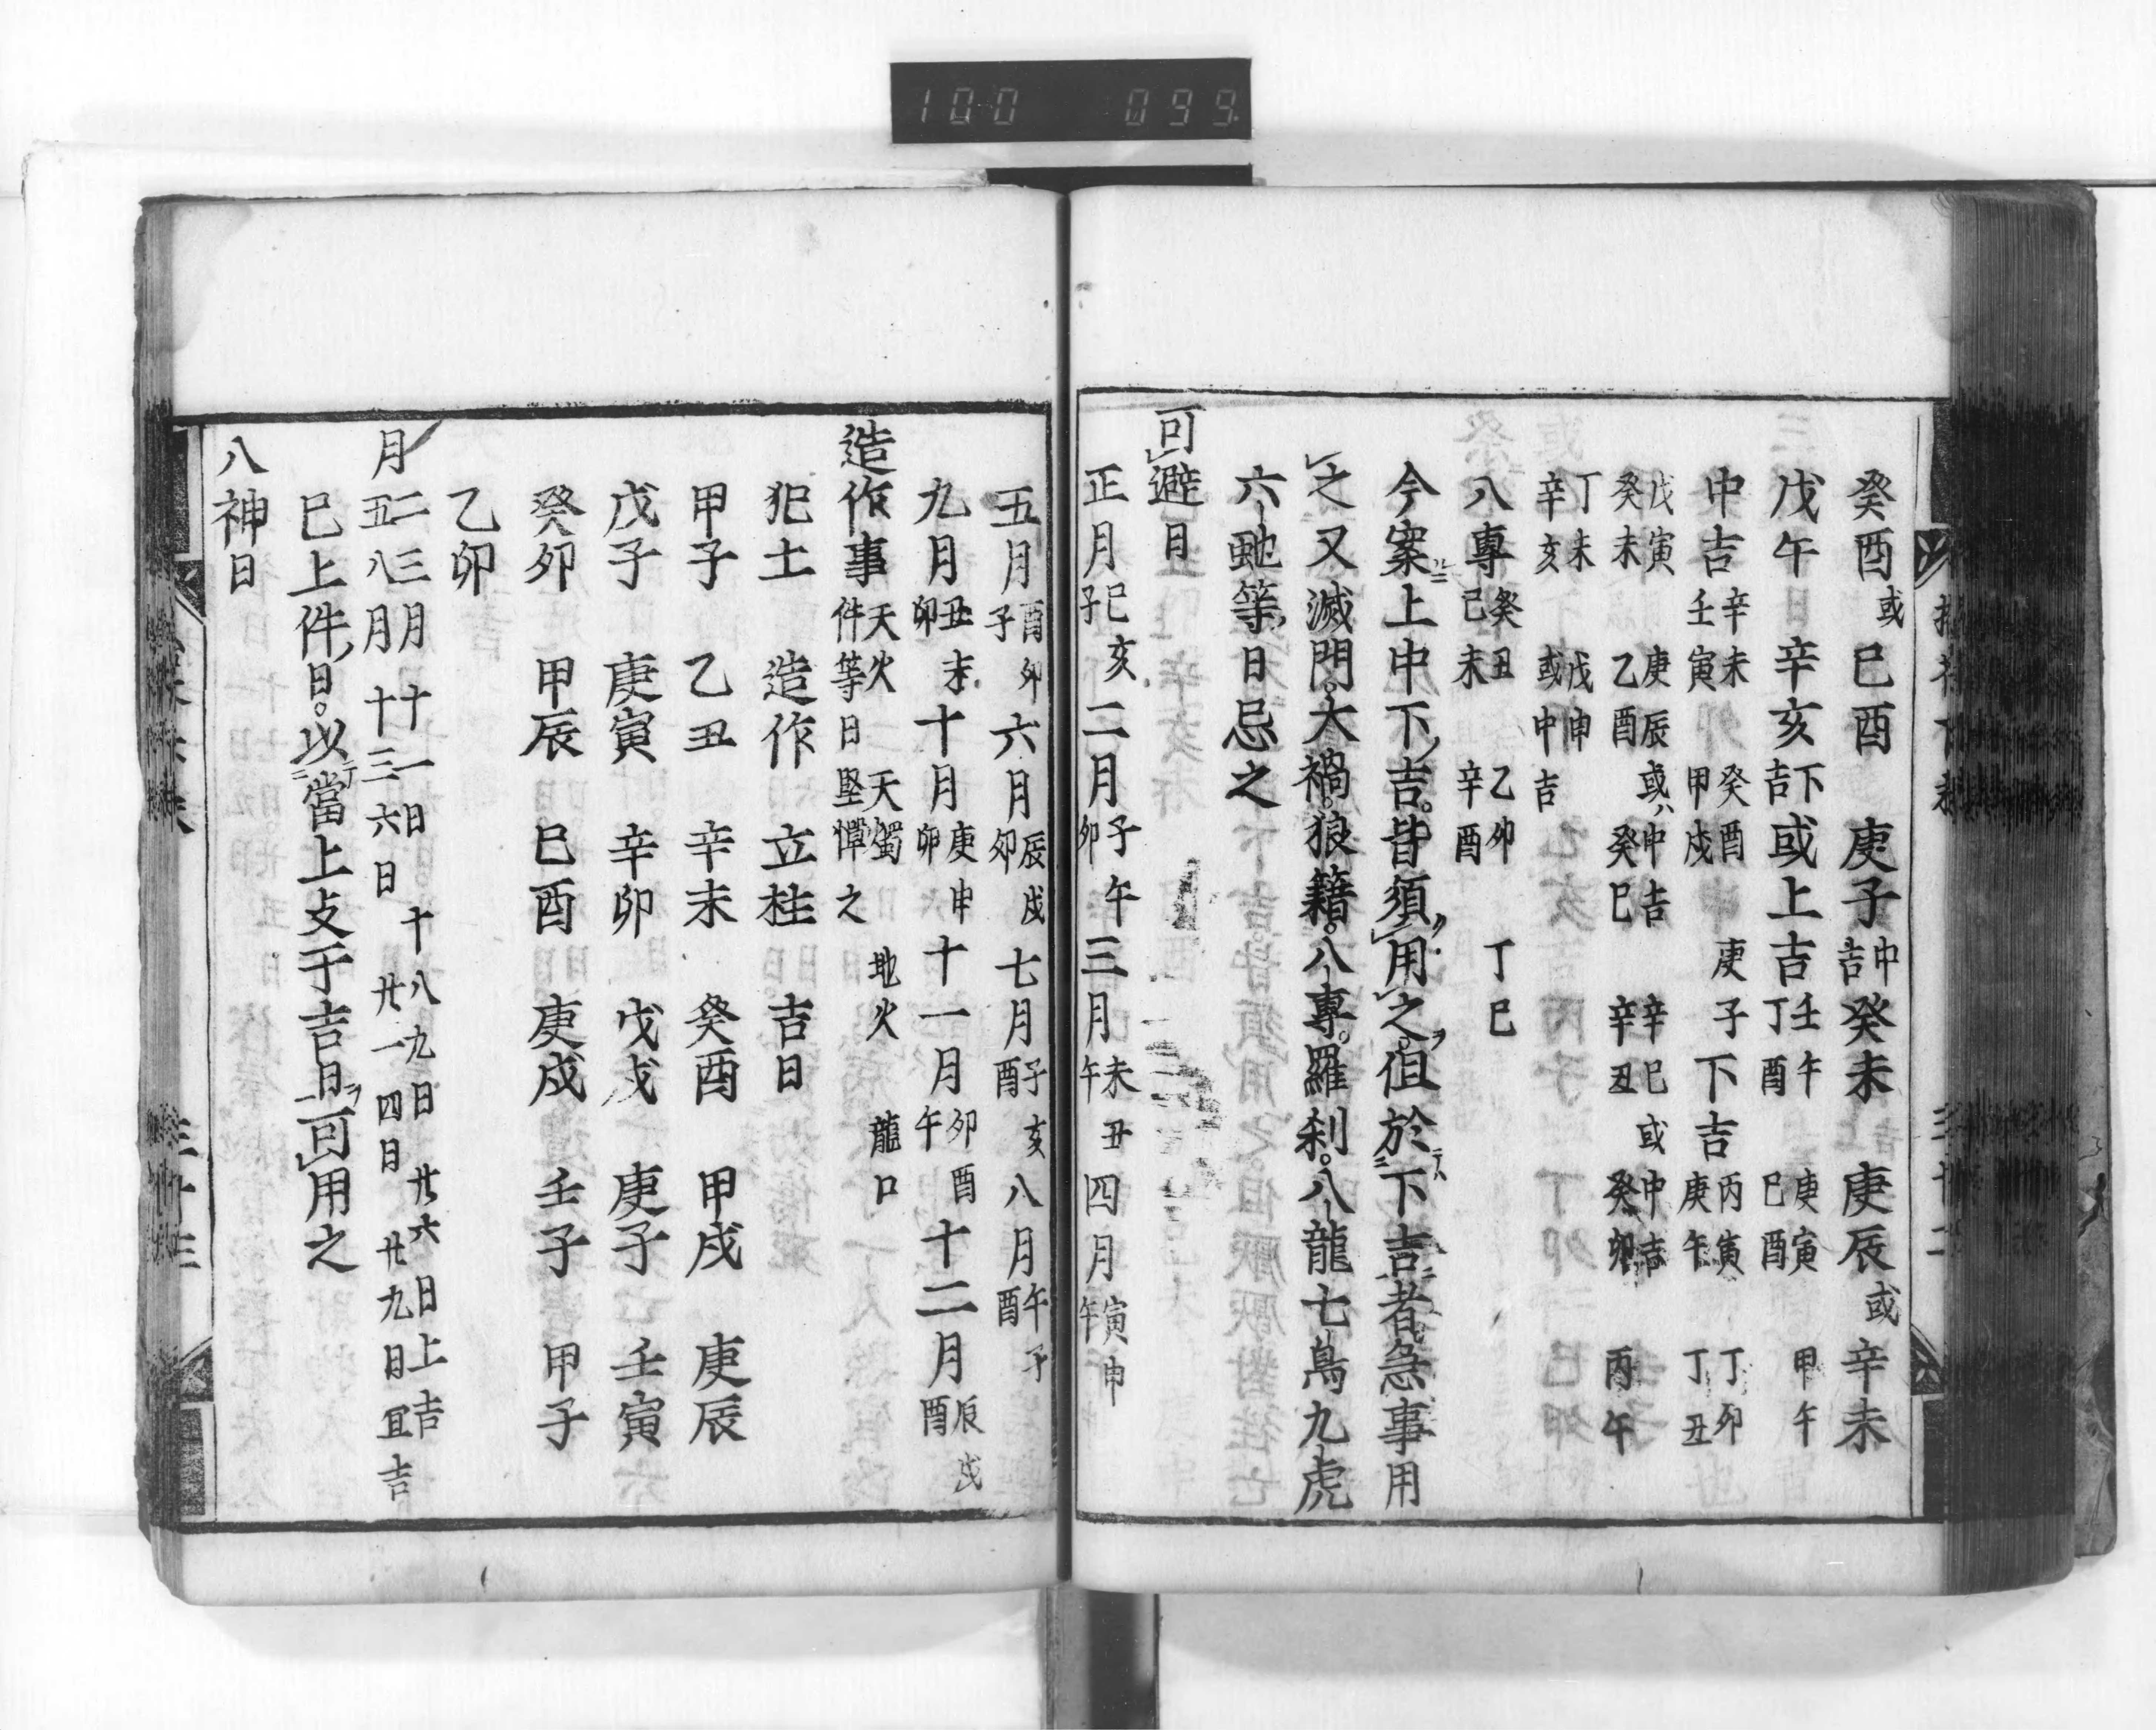 100 099
癸酉或 巳酉 庚子中吉 癸未 庚辰或 辛未
戊午 辛亥下吉 或上吉 壬午 丁酉 庚寅 巳酉 甲午
中吉 辛未 壬寅 癸酉 甲戌 庚子 下吉 丙寅 庚午 丁卯 丁丑
戊寅 癸未 庚辰 乙酉 或ハ中吉 癸巳 辛巳 辛丑 或中吉 癸卯 丙午
丁未 辛亥 戊申 或中吉
八專 癸丑 己未 乙卯 辛酉 丁巳
今案ニ上中下ノ吉皆須ク用之ヲ但於テハ下吉者急事用
之又滅門大禍狼籍八專羅刹八龍七鳥九虎
六虵等ノ日忌之
可避日
正月 巳亥 子 二月 子午 卯 三月 未丑 午 四月 寅申 午
五月 酉卯 子 六月 辰戌 卯 七月 子亥 酉 八月 午子 酉
九月 丑未 卯 十月 庚申 卯 十一月 卯酉 午 十二月 辰戌 酉
造作事 天火 天燭 地火 龍口 件等日堅憚之
犯土 造作 立柱 吉日
甲子 乙丑 辛未 癸酉 甲戌 庚辰
戊子 庚寅 辛卯 戊戌 庚子 壬寅
癸卯 甲辰 巳酉 庚戌 壬子 甲子
乙卯
月 二三月 十一日 十八九日 廿六日上吉
五八月 十三六日 廿一四日 廿九日宜吉
巳上件ノ日以テ當上攴于吉日ヲ可用之
八神日